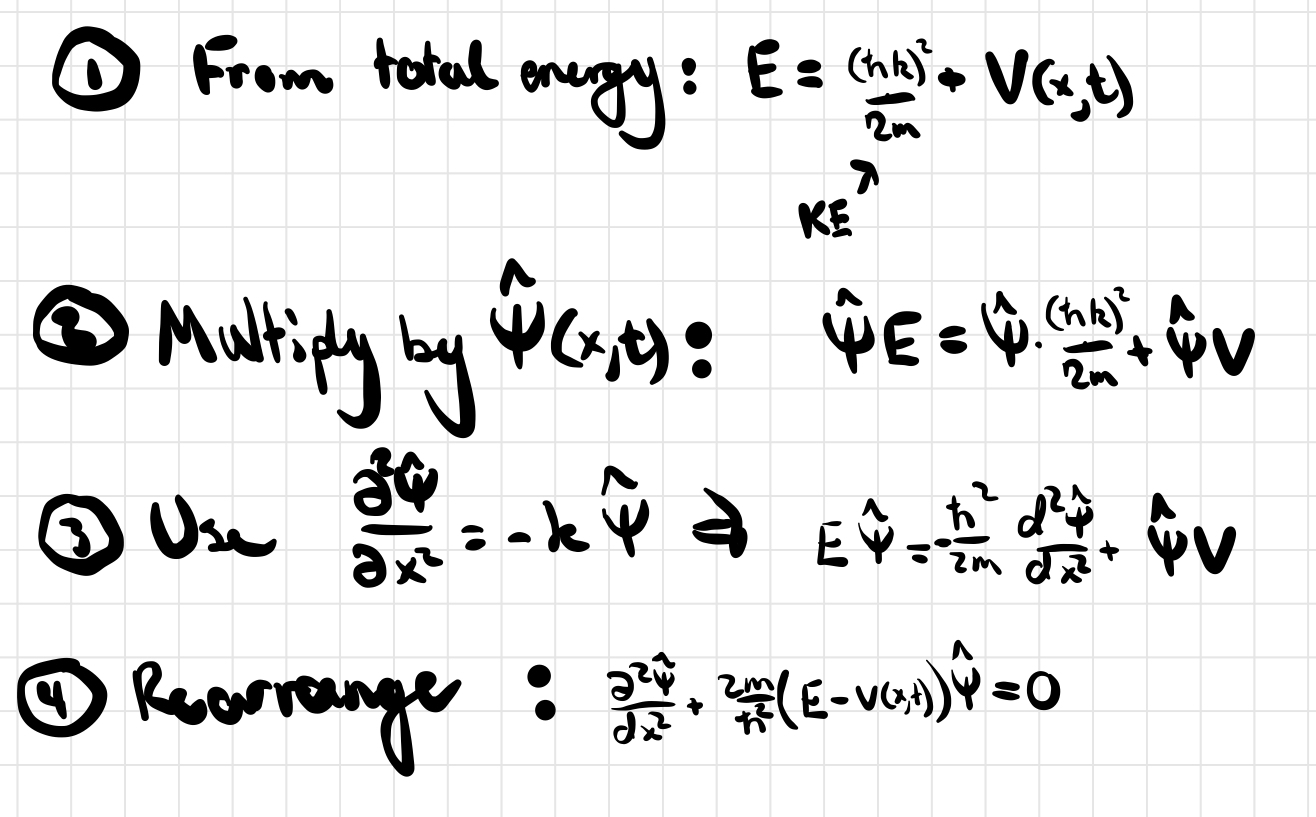 ① From total energy: E = (ħk)²/2m + V(x,t)
KE ↗
② Multiply by Ψ̂(x,t): Ψ̂E = Ψ̂·(ħk)²/2m + Ψ̂V
③ Use ∂²Ψ̂/∂x² = -kΨ̂ ⇒ EΨ̂ = -ħ²/2m d²Ψ̂/dx² + Ψ̂V
④ Rearrange : ∂²Ψ̂/dx² + 2m/ħ²(E - V(x,t))Ψ̂ = 0